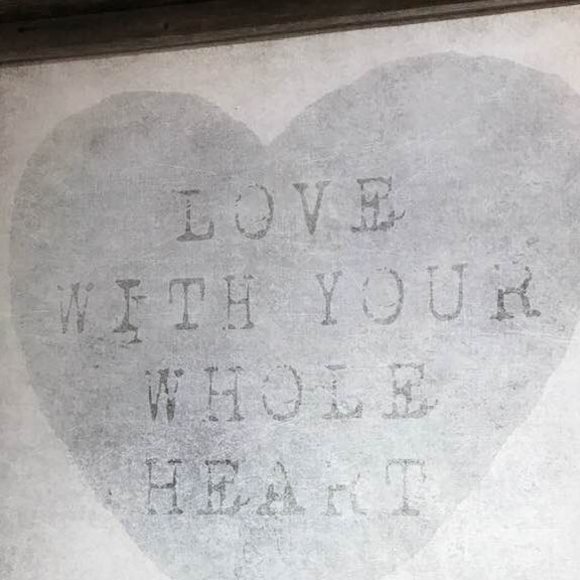 LOVE
WITH YOUR
WHOLE
HEART